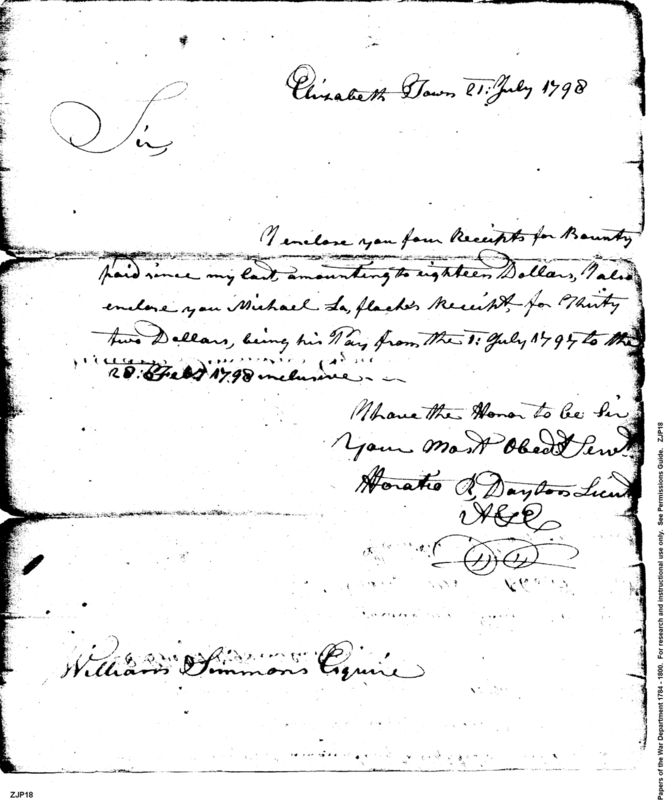 Elizabeth Town 21: July 1798
Sir,
I enclose you four Receipts for Bounty
paid since my last amounting to eighteen Dollars, I also
enclose you Michael La,flache's Receipt, for Thirty
two Dollars, being his Pay from the 1: July 1797 to the
28: Feb 1798 inclusive
I have the Honor to be Sir
Your Most Obedt Servt
Horatio R Dayton Lieut
A&E
William Simmons Esquire
ZJP18
Papers of the War Department 1784 - 1800. For research and instructional use only. See Permissions Guide. ZJP18